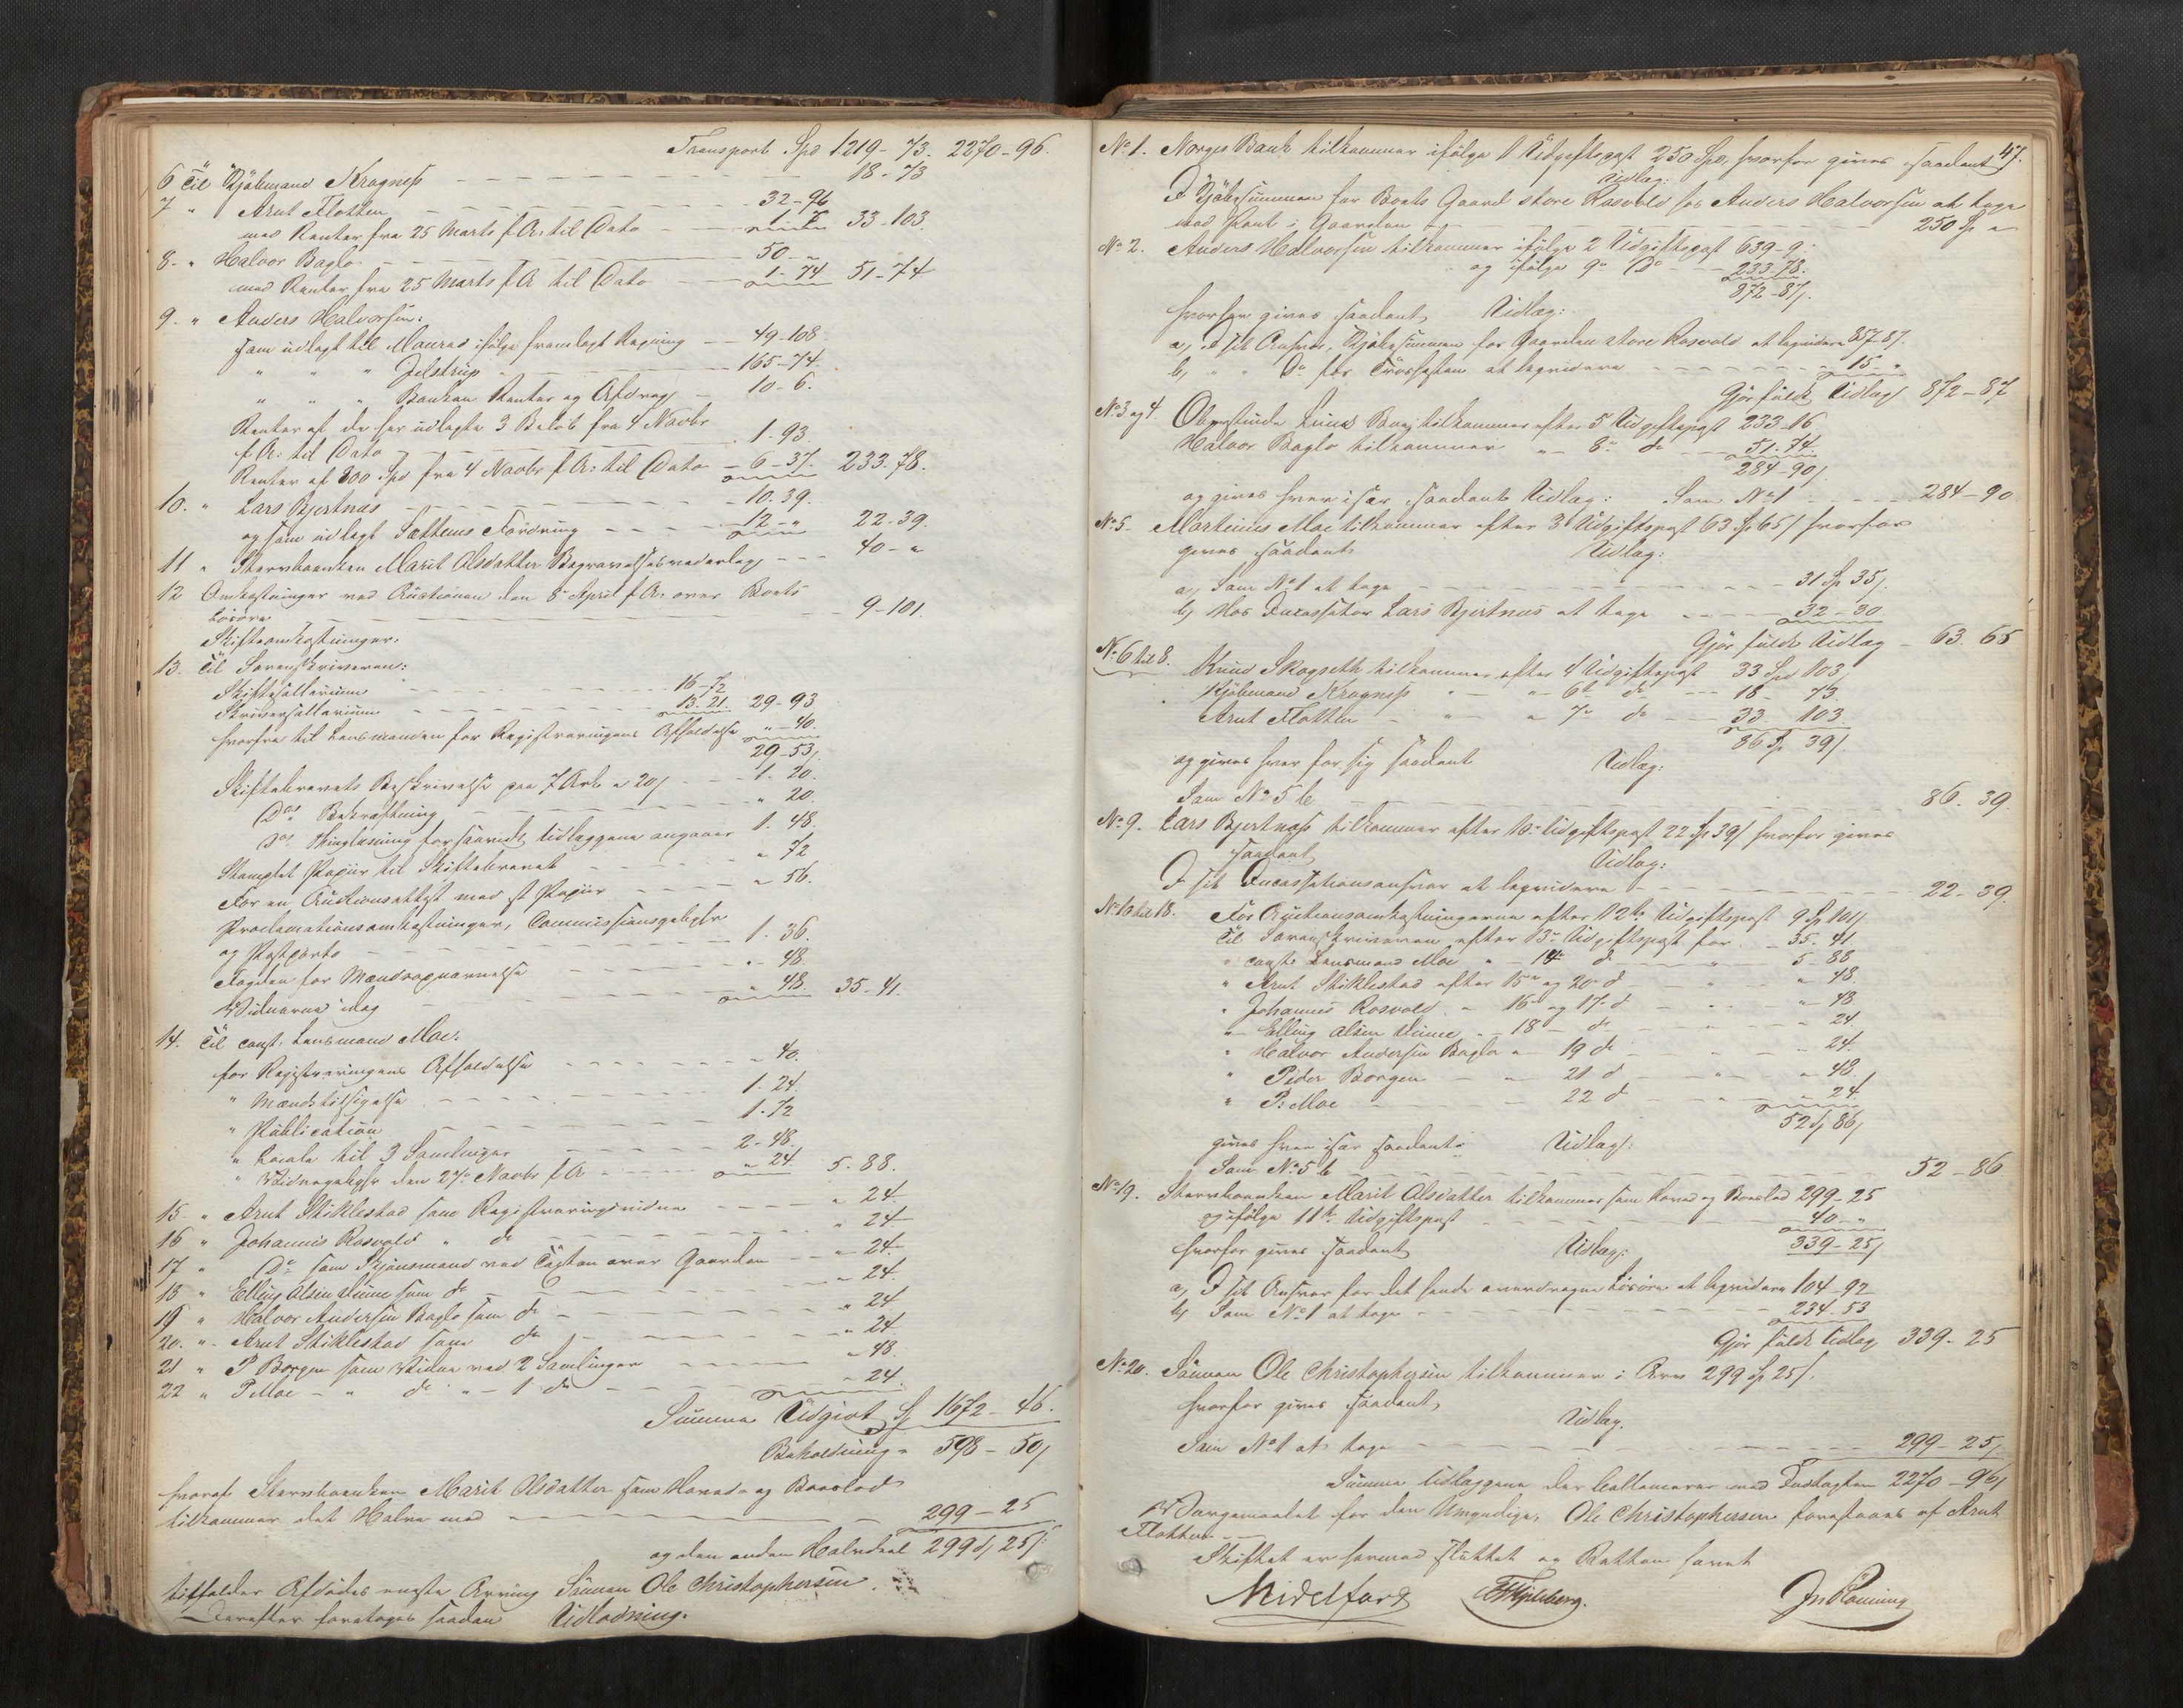 Transport Spd 1219-73. 2270-96.
6 Til Kjöbmand Kragness 18-73
7 " Arnt Flotten 32-96
med Renter fra 25 Marts f A. til Dato 1-7 33-103.
8- " Halvor Baglo 50-"
med Renter fra 25 Marts f A til Dato 1-74 51-74
9. " Anders Halvorsen:
som udlagt til Maurad ifölge fremlagt Regning 49-108
" " " Jelstrup 165-74.
" " " Banken Renter og Afdrag 10-6.
Renter af de her udlagte 3 Belöb fra 4 Novbr
f A: til Dato 1.93.
Renter af 200 Spd fra 4 Novbr f A: til Dato 6-37. 233.78.
10. " Lars Bjertnæs 10.39.
og som udlagt Fordring 12-" 22-39.
11 " Stervboenken Marit Olsdatter Begravelsesvederlag 40-"
12 Omkostninger ved Auctionen den 8de April f A: over Boets
Lösöre 9-101.
Skifteomkostninger.
13. Til Sorenskriveren:
Skiftesallarium 16-72
Skriversallarium 13.21. 29-93
hvorfra til Lensmanden for Registreringens Afholdelse "-40.
29-53/
Skiftebrevets Beskrivelse paa 7 Ark a 20/ 1. 20.
Ds Bekræftning " 20.
Ds Thinglæsning forsaavidt Udlæggene angaaer 1. 48.
Stemplet Papiir til Skiftebrevet " 72
For en Auctionsattest med st Papiir " 56.
Proclamationsomkostninger, Commissionsgebyhr
og Postporto 1. 36.
Fogden for Mændsopnævnelse "-48.
Vidnerne idag " 48. 35-41.
14. Til const. Lensmand Moe:
for Registreringens Afholdelse " 40.
" Mændstilsigelse 1-24.
" Publication 1-72
" Locale til 3 Samlinger 2-48.
" Vidnegebyhr den 27de Novbr f A " 24. 5. 88.
15 " Arnt Stiklestad som Registreringsvidne " 24
16 " Johannes Rosvold " do " 24
17 " Do som Skjönsmand ved Taxten over Gaarden " 24.
18 " Elling Olsen som do " 24.
19 " Halvor Andersen Baglo som do " 24
20. " Arnt Stiklestad som do " 24
21 " P Borgen som Vidne ved 2 Samlinger " 48.
22 " P Moe " do " 1 do " 24.
Summa Udgivt Sp 1672-46.
Beholdning " 598-50/
hvoraf Stervboenken Marit Olsdatter som Hoved- og Boeslod
tilkommer det Halve med 299-25
og den anden Halvdeel 299 Sp 25/:
tilfalder Afdödes eneste Arving Sönnen Ole Christophersen.
Derefter foretoges saadan Udlodning.
47.
No 1. Norges Bank tilkommer ifölge 1 Udgiftspost 250 Spd, hvorfor gives saadant
Udlæg:
I Kjöbesummen for Boets Gaard store Rosvold hos Anders Halvorsen at tage
med Pant i Gaarden 250 Sp "
No 2. Anders Halvorsen tilkommer ifölge 2 Udgiftspost 639-9.
og ifölge 9de Do 233-78.
872-87/.
hvorfor gives saadant Udlæg:
a, I sit Ansvar, Kjöbesummen for Gaarden store Rosvold at liqvidere 857 87.
b, " " Do for at liqvidere 15-"
Gjör fuldt Udlæg 872-87
No 3 og 4. Lund tilkommer efter 5 Udgiftspost 233-16
Halvor Baglo tilkommer " 8de do 51-74.
284-90/
og gives hver især saadant Udlæg: Som No 1 284-90
No 5. Martinus Moe tilkommer efter 3de Udgiftspost 63 Sp 65/ hvorfor
gives saadant Udlæg:
a, Som No 1 at tage 31 Sp 35/.
b, Hos Incassator Lars Bjertnæs at tage 32-30
Gjör fuldt Udlæg 63. 65
No 6 til 8. Knud Skogseth tilkommer efter 4 Udgiftspost 33 Spd 103/
" Kjöbmand Kragness " " 6te do 18- 73
Arnt Flotten " " 7de do 33 103.
86 Sp 39/.
og gives hver for sig saadant Udlæg:
Som No 5 b 86. 39.
No 9. Lars Bjertnæs tilkommer efter 10de Udgiftspost 22 Sp 39/ hvorfor gives
saadant Udlæg:
I sit Incassationsansvar at liqvidere 22-39.
No 10 til 18. For Auctionsomkostningerne efter 12te Udgiftspost 9 Sp 101/
Til Sorenskriveren efter 13de Udgiftspost for 35.41
" const. Lensmand Moe " 14 d " 5-88
" Arnt Stiklestad efter 15de og 20de d " " 48
" Johannes Rosvold " 16de og 17de d " " 48
" Elling Olsen " 18 do " " 24
" Halvor Andersen Baglo " 19 do " " 24.
" Peder Borgen " 21 d " " 48.
" P. Moe 22 d " 24.
52 Sp 86/
gives hver især saadant Udlæg:
Som No 5 b 52-86
No 19. Stervboenken Marit Olsdatter tilkommer som Hoved og Boeslod 299-25
og ifölge 11te Udgiftspost 40-"
hvorfor gives saadant Udlæg: 339-25/
a, I sit Ansvar for det hende overdragne Lösöre at liqvidere 104-92
b, Som No 1 at tage 234-53
Gjör fuldt Udlæg 339-25
No 20. Sönnen Ole Christophersen tilkommer i Arv 299 Sp 25/.
hvorfor gives saadant,
Udlæg.
Som No 1 at tage 299-25/
Summa Udlæggene der ballancerer med Indtægten 2270-96/
Værgemaalet for den Umyndige, Ole Christophersen forestaaes af Arnt
Flotten
Skiftet er hermed sluttet og Retten hævet
Midelfart